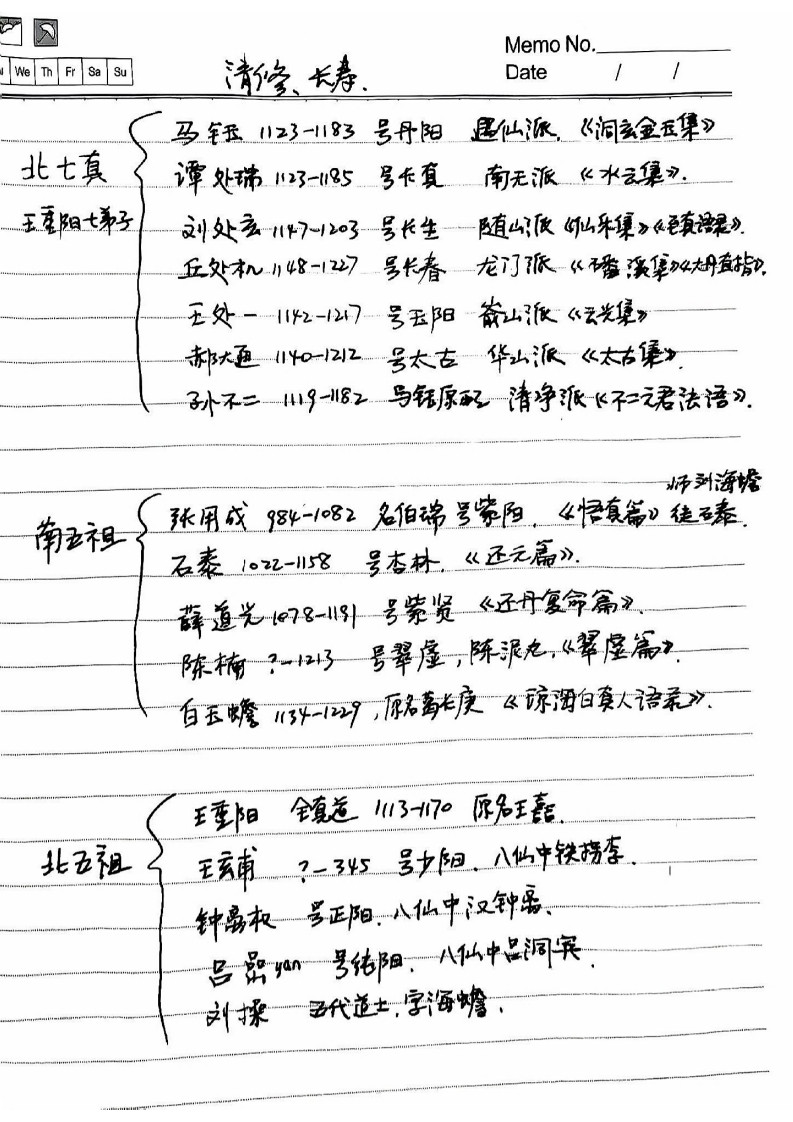 We Th Fr Sa Su
Memo No.
Date / /
清修、长寿.
北七真
王重阳七弟子
马钰 1123-1183 号丹阳 遇仙派,《洞玄金玉集》
谭处瑞 1123-1185 号长真 南无派 《水云集》.
刘处玄 1147-1203 号长生 随山派《仙乐集》《至真语录》.
丘处机 1148-1227 号长春 龙门派 《磻溪集》《大丹直指》.
王处一 1142-1217 号玉阳 嵛山派《云光集》
郝大通 1140-1212 号太古 华山派《太古集》.
孙不二 1119-1182 马钰原配 清净派《不二元君法语》.
南五祖
师刘海蟾
张用成 984-1082 名伯瑞 号紫阳.《悟真篇》徒石泰.
石泰 1022-1158 号杏林.《还元篇》.
薛道光 1078-1191 号紫贤 《还丹复命篇》.
陈楠 ?-1213 号翠虚,陈泥丸,《翠虚篇》.
白玉蟾 1134-1229,原名葛长庚 《琼琯白真人语录》.
北五祖
王重阳 全真道 1113-1170 原名王嚞.
王玄甫 ?-345 号少阳.八仙中铁拐李.
钟离权 号正阳.八仙中汉钟离.
吕喦yan 号纯阳.八仙中吕洞宾.
刘操 五代道士.字海蟾.